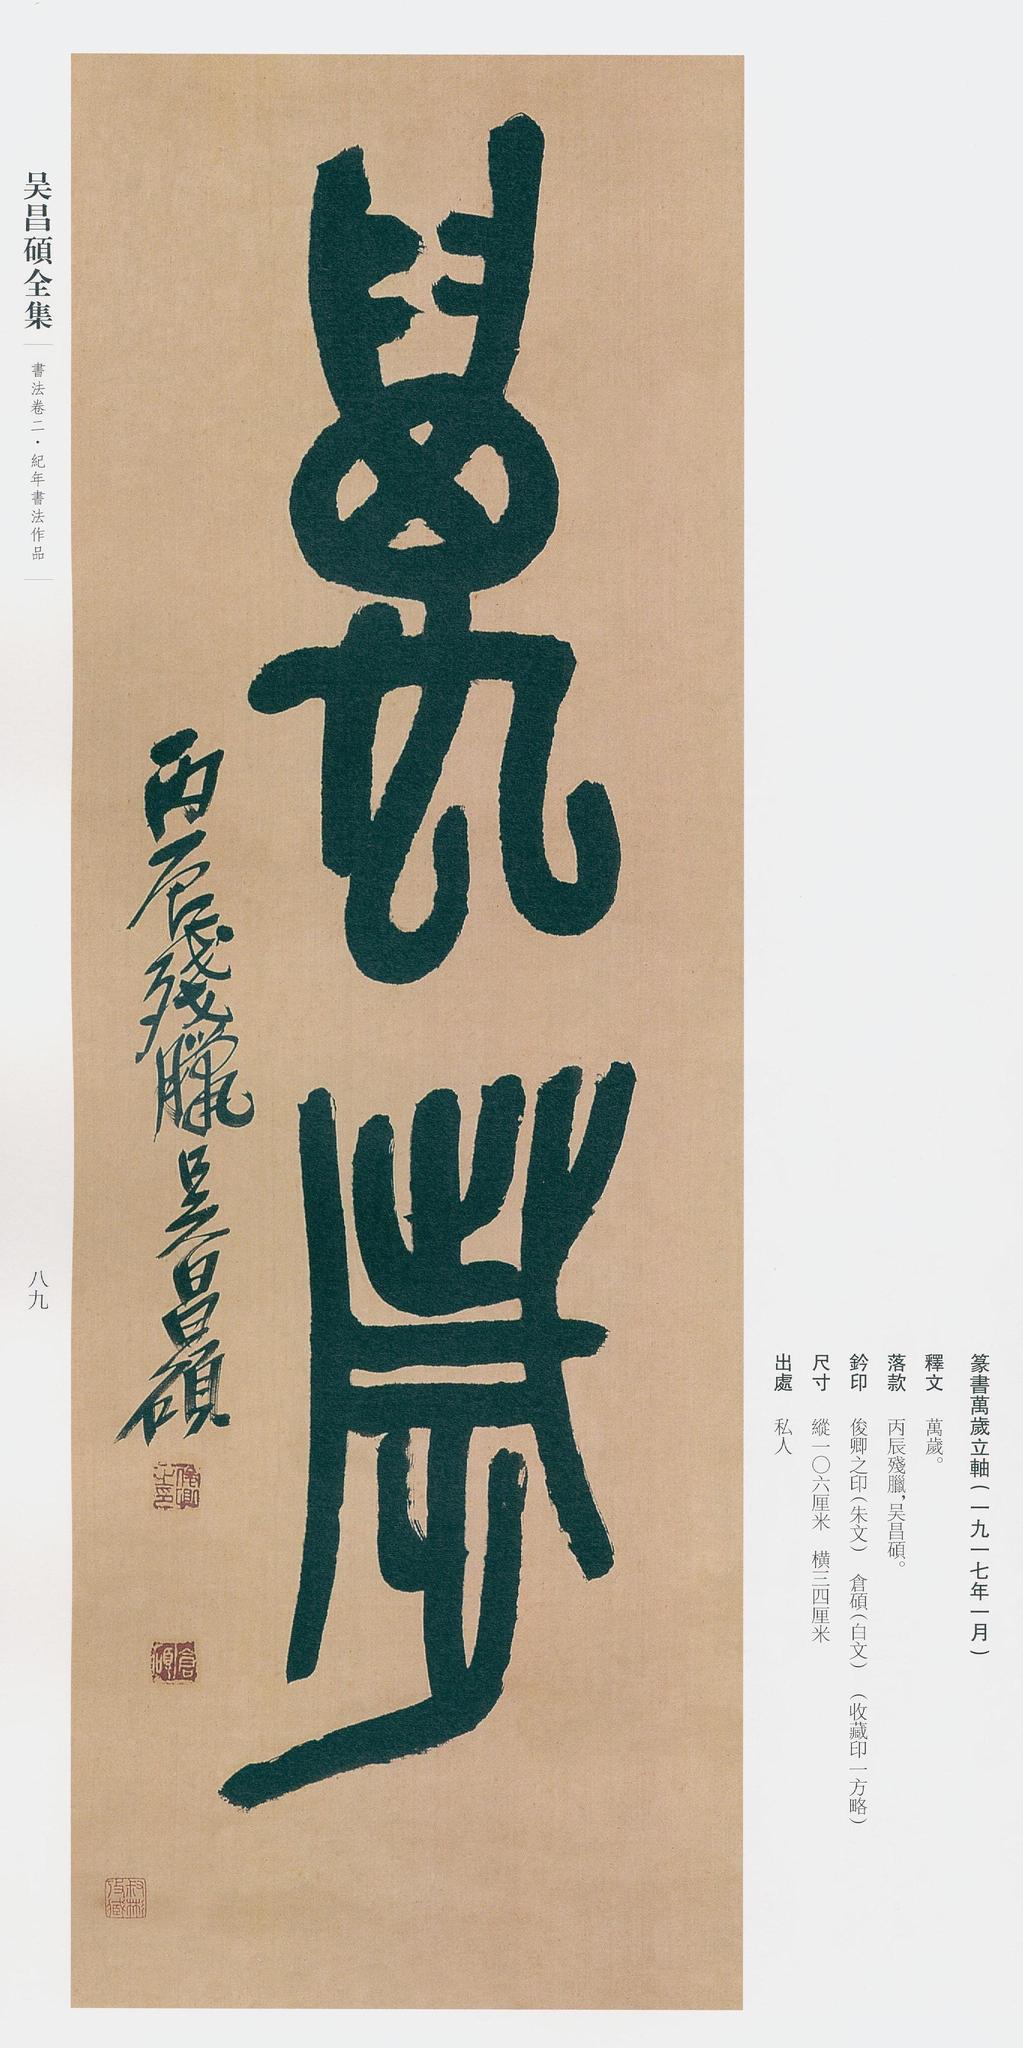 篆書萬歲立軸(一九一七年一月)
釋文 萬歲。
落款 丙辰殘臘,吴昌碩。
鈐印 俊卿之印(朱文) 倉碩(白文) (收藏印一方略)
尺寸 縱一〇六厘米 橫三四厘米
出處 私人
萬歲
丙辰殘臘吴昌碩
俊卿之印
倉碩
吴昌碩全集
書法卷二·紀年書法作品
八九